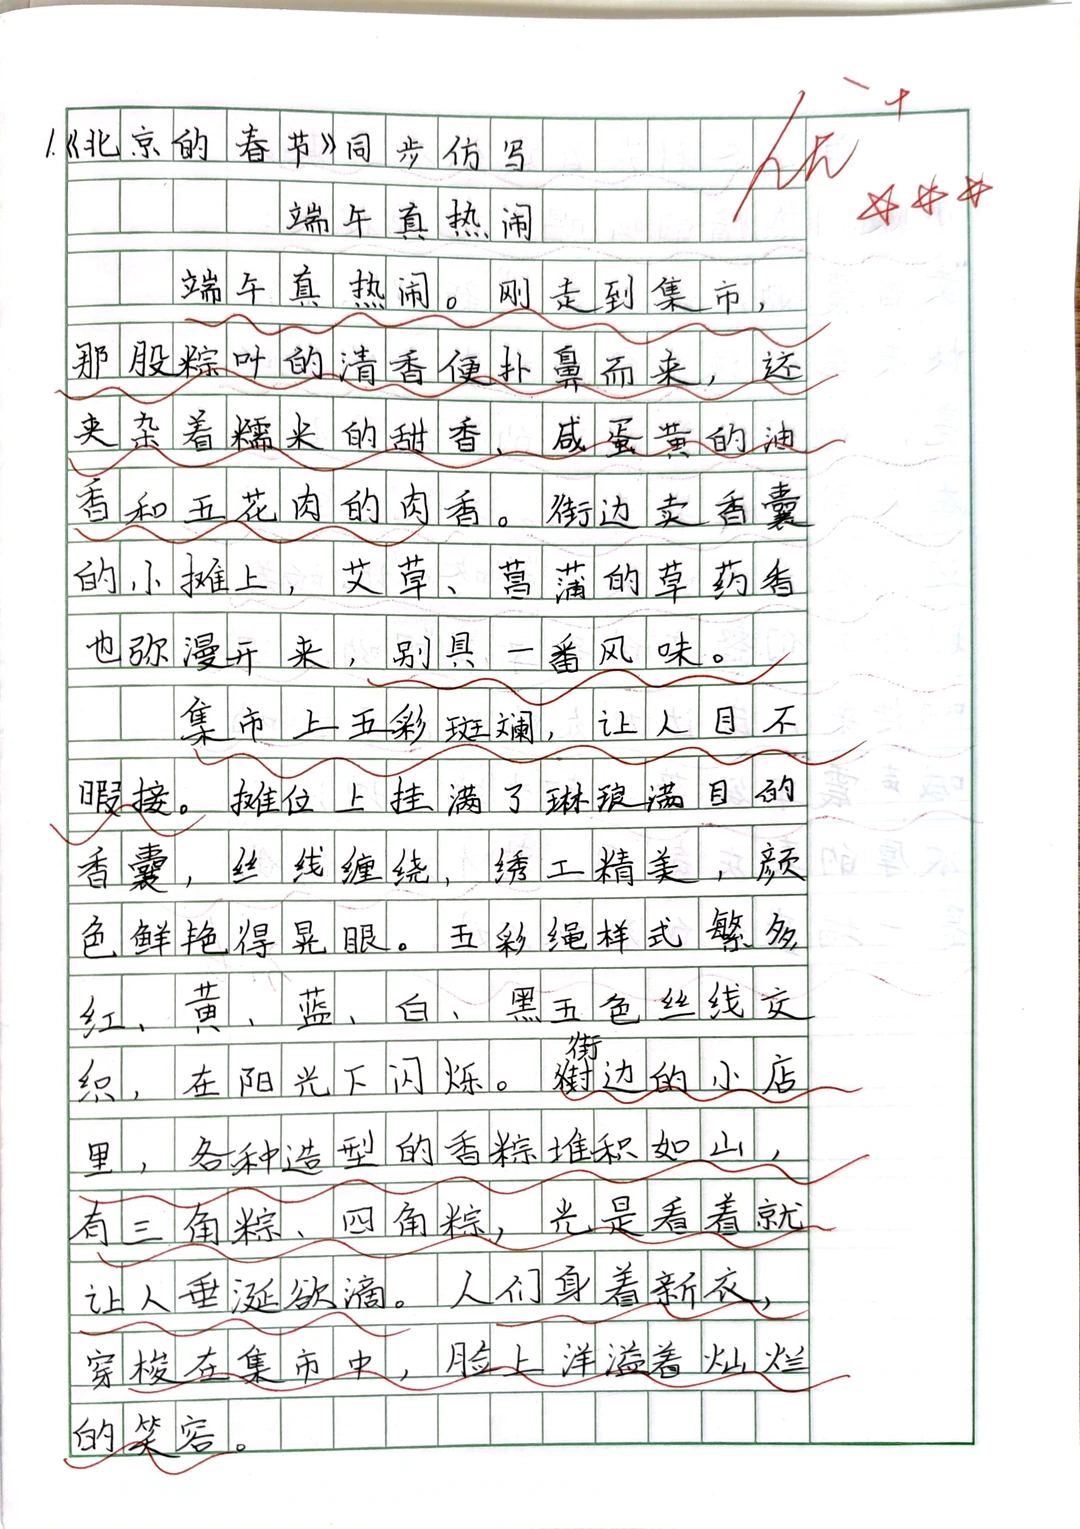 1.《北京的春节》同步仿写
优+
端午真热闹
端午真热闹。刚走到集市,
那股粽叶的清香便扑鼻而来,还
夹杂着糯米的甜香、咸蛋黄的油
香和五花肉的肉香。街边卖香囊
的小摊上,艾草、菖蒲的草药香
也弥漫开来,别具一番风味。
集市上五彩斑斓,让人目不
暇接。摊位上挂满了琳琅满目的
香囊,丝线缠绕,绣工精美,颜
色鲜艳得晃眼。五彩绳样式繁多
红、黄、蓝、白、黑五色丝线交
织,在阳光下闪烁。街边的小店
里,各种造型的香粽堆积如山,
有三角粽、四角粽,光是看着就
让人垂涎欲滴。人们身着新衣,
穿梭在集市中,脸上洋溢着灿烂
的笑容。